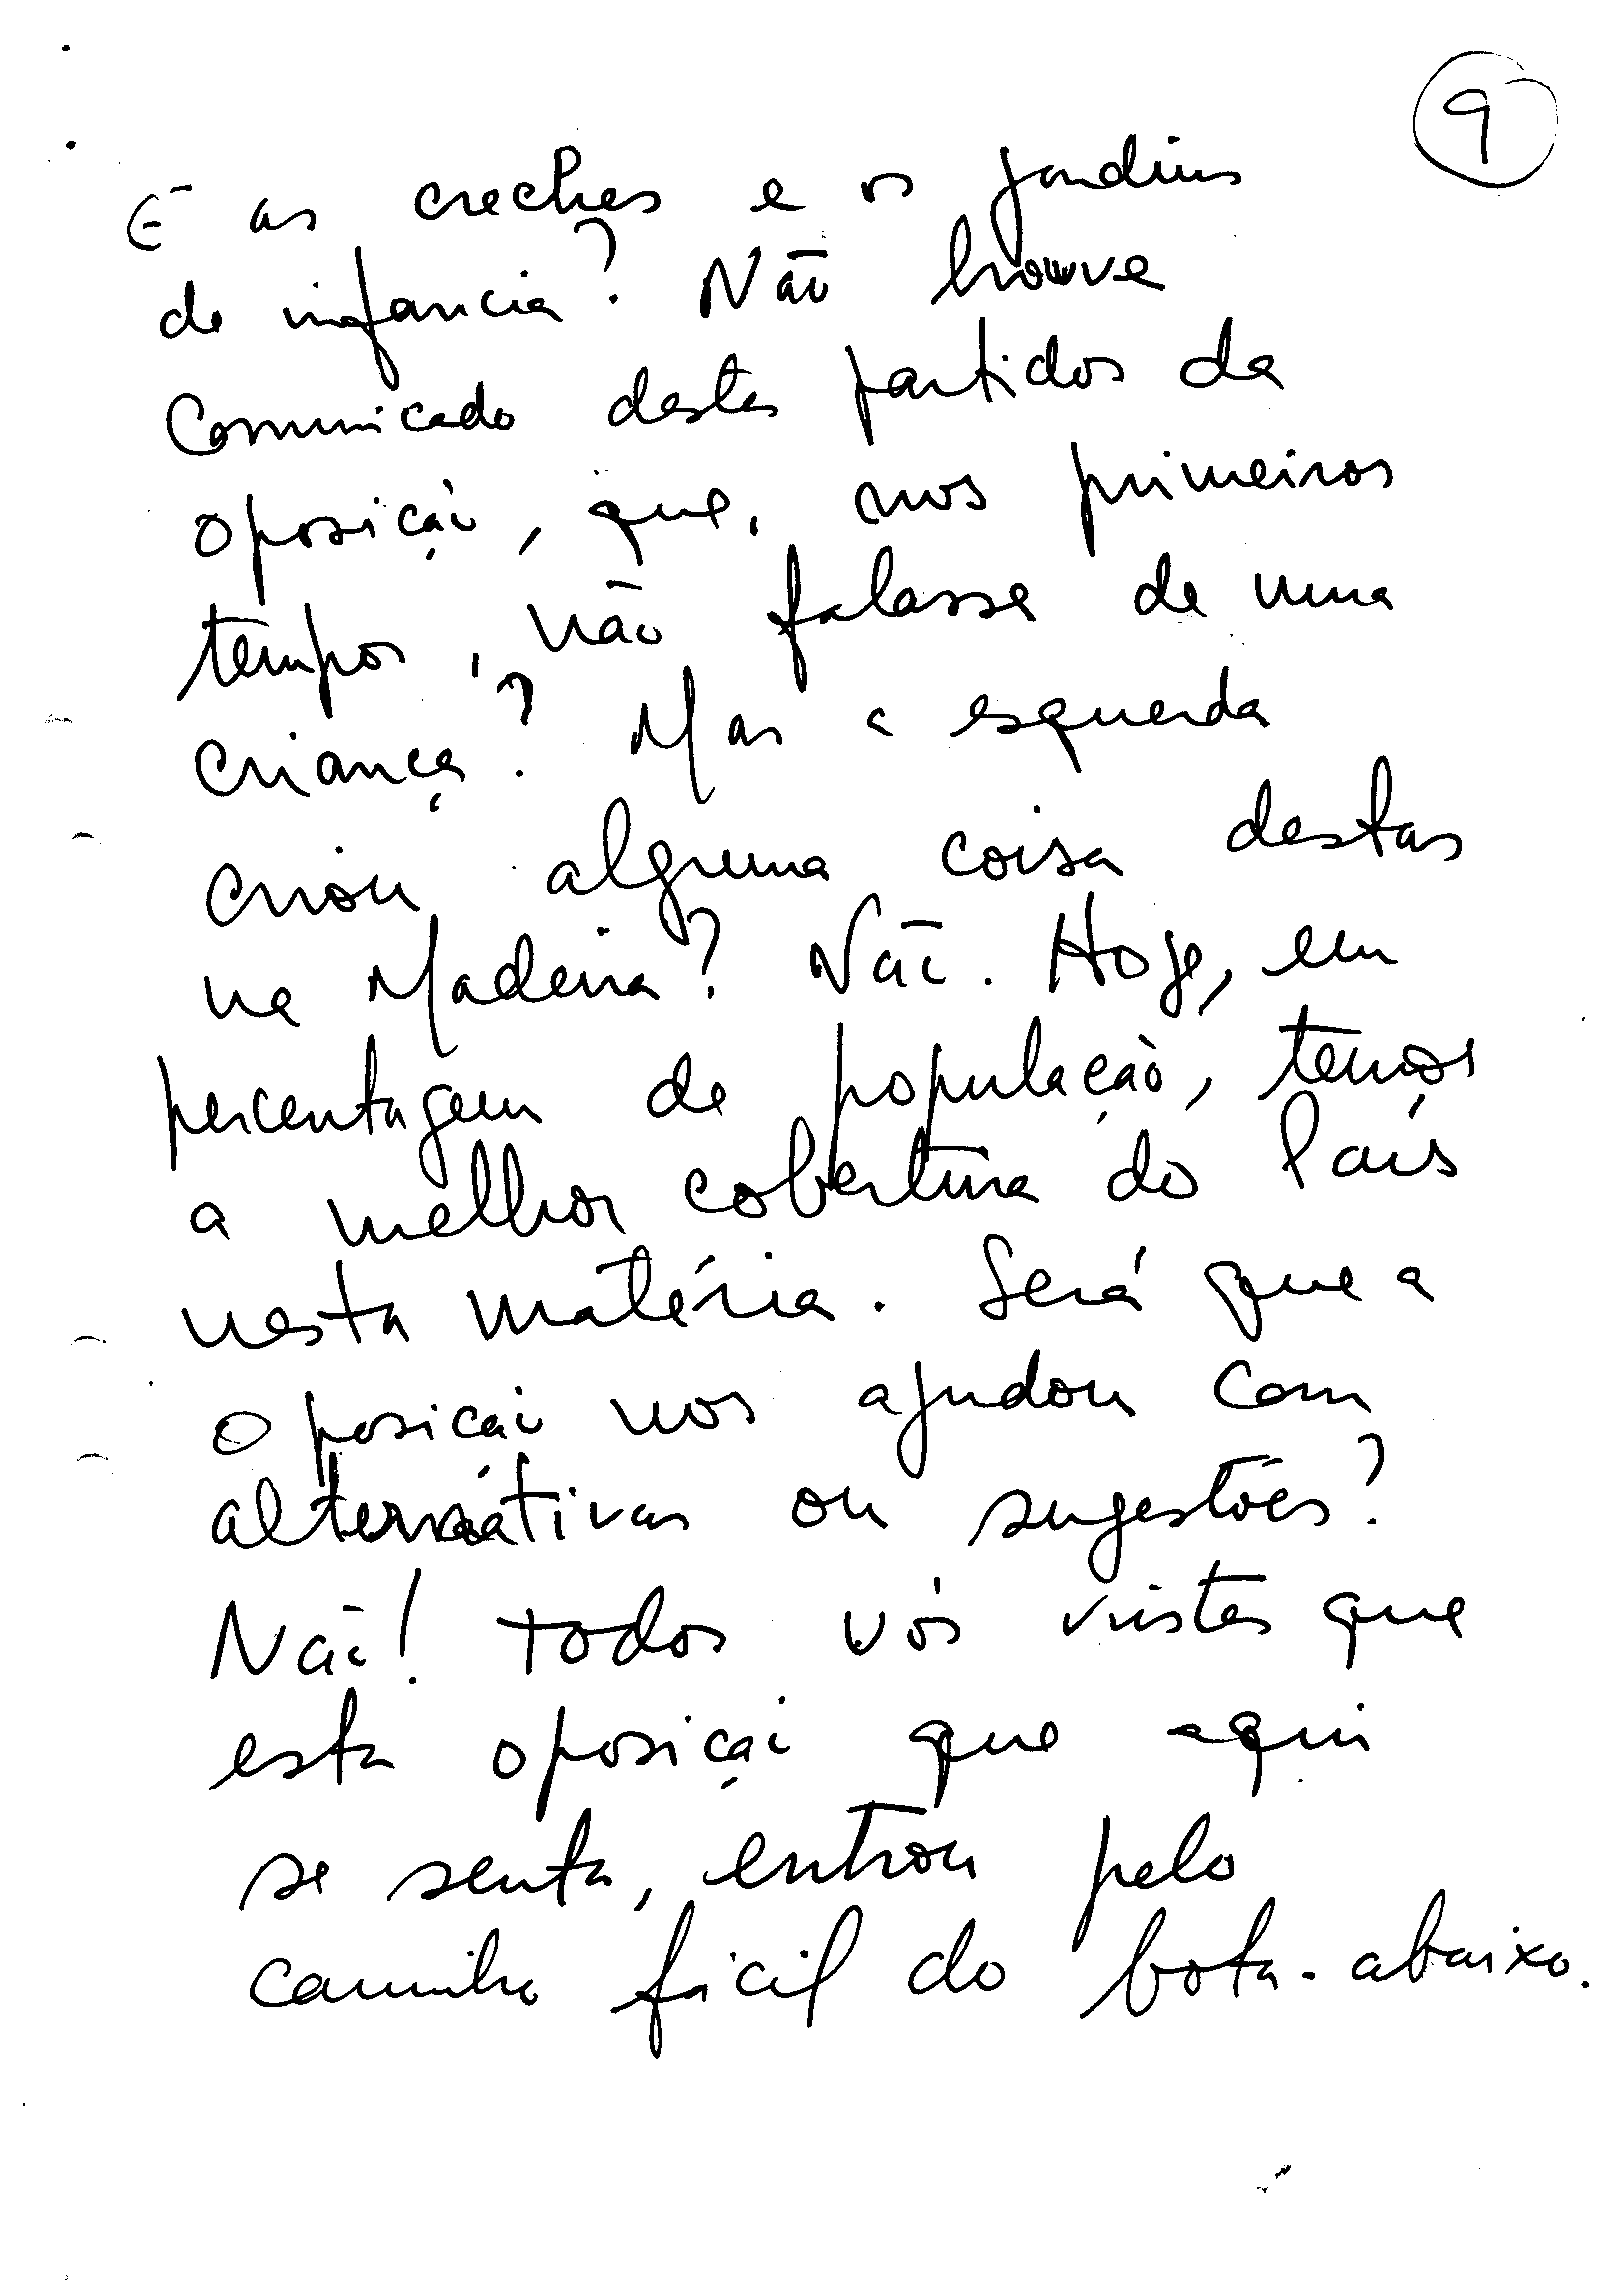 9
E as creches e os jardins
de infancia? Não houve
Comunicado destes partidos da
oposição, que, nos primeiros
tempos, não falasse de uma
criança? Mas a esquerda
criou alguma coisa destas
na Madeira? Não. Hoje, em
percentagem de população, temos
a melhor cobertura do País
nesta matéria. Será que a
oposicão nos ajudou com
alternativas ou sugestões?
Não! Todos vós vistes que
esta oposição que aqui
se senta, entrou pelo
caminho fácil do bota-abaixo.